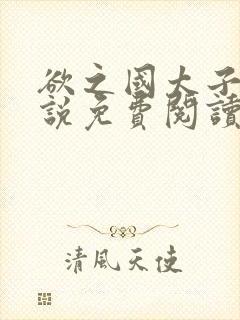 欲之國大子
說免費閱讀
清風天使